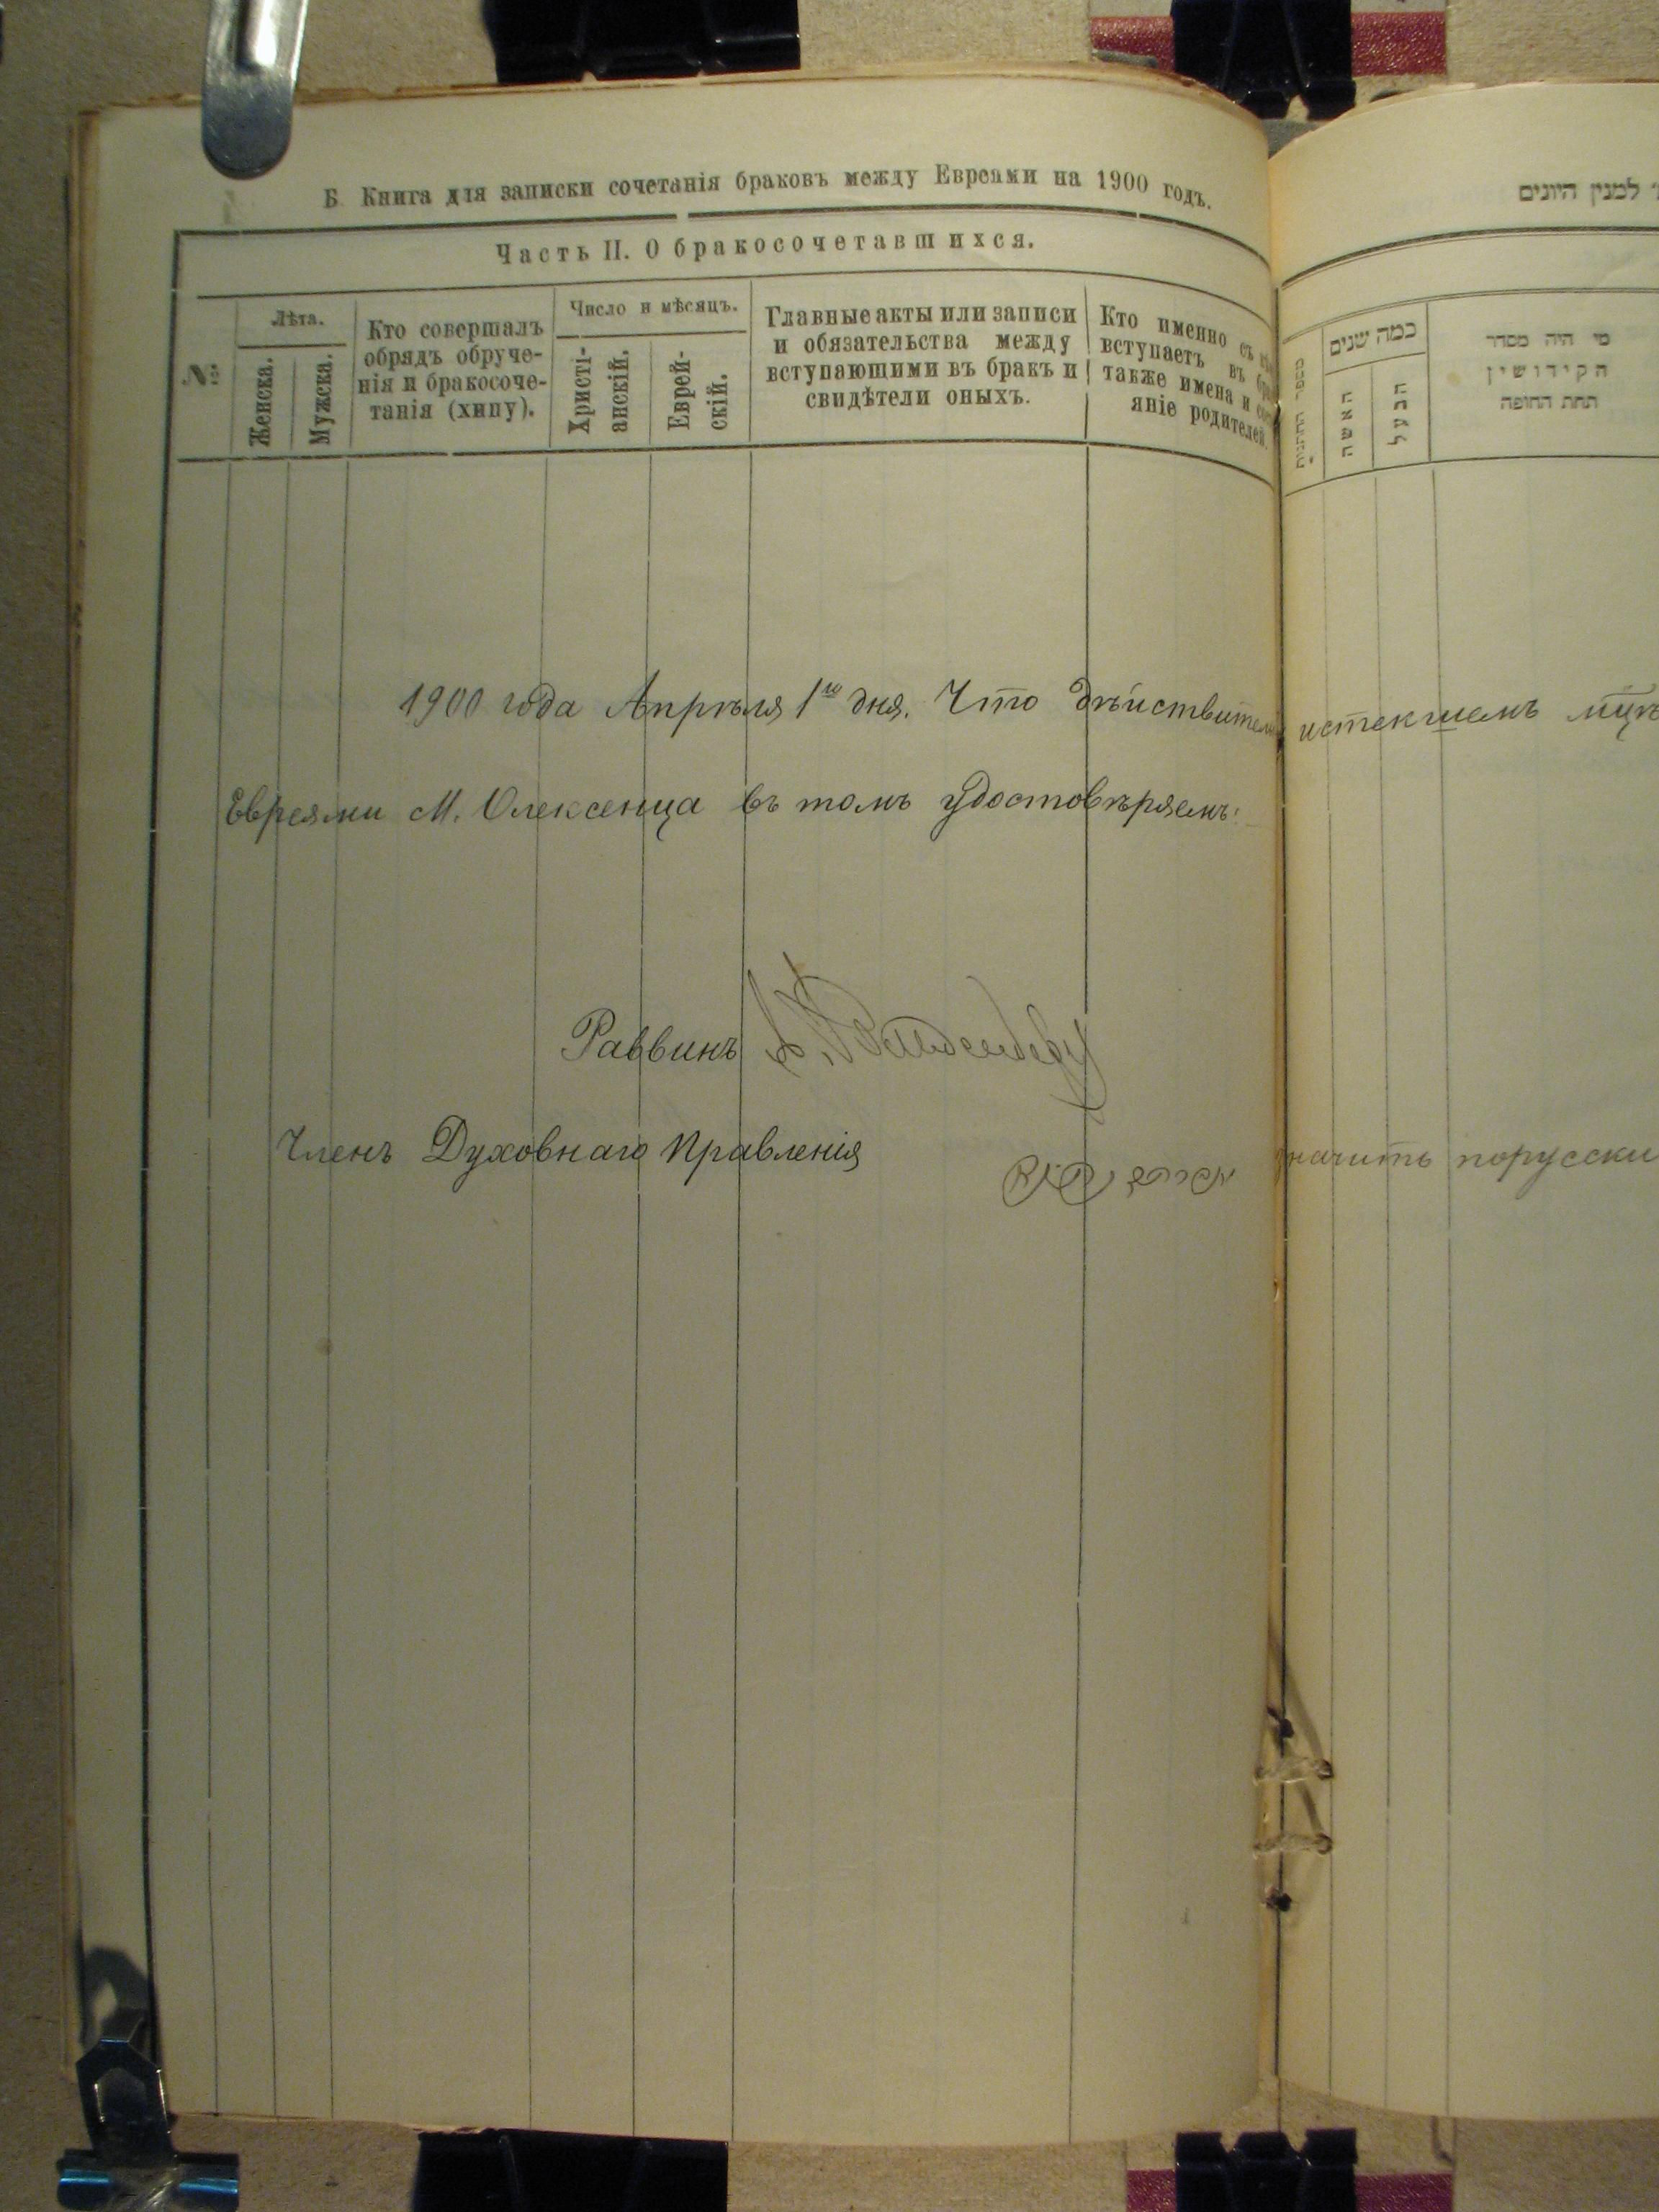 Б Книга для записки сочетанія браковъ между Евреами на 1900 годъ.
Часть II. О бракосочетавшихся.
№
Лѣта.
Женска.
Мужска.
Кто совершалъ
обрядъ обруче-
нія и бракосоче-
танія (хипу).
Число и мѣсяцъ.
Христі-
анскій.
Еврей-
скій.
Главные акты или записи
и обязательства между
вступающими въ бракъ и
свидѣтели оныхъ.
Кто именно съ
вступаетъ въ
также имена и
яніе родителей.
1900 года Апрѣля 1го дня. Что дѣйствительно
Евреями М. Олексенца въ томъ удостовѣряемъ:
Раввинъ
Членъ Духовнаго Правленія
למנין היונים
כמה שנים
האשה
הבעל
מי היה מסדר
הקידושין
תחת החופה
истекшемъ мцѣ
значитъ порусски